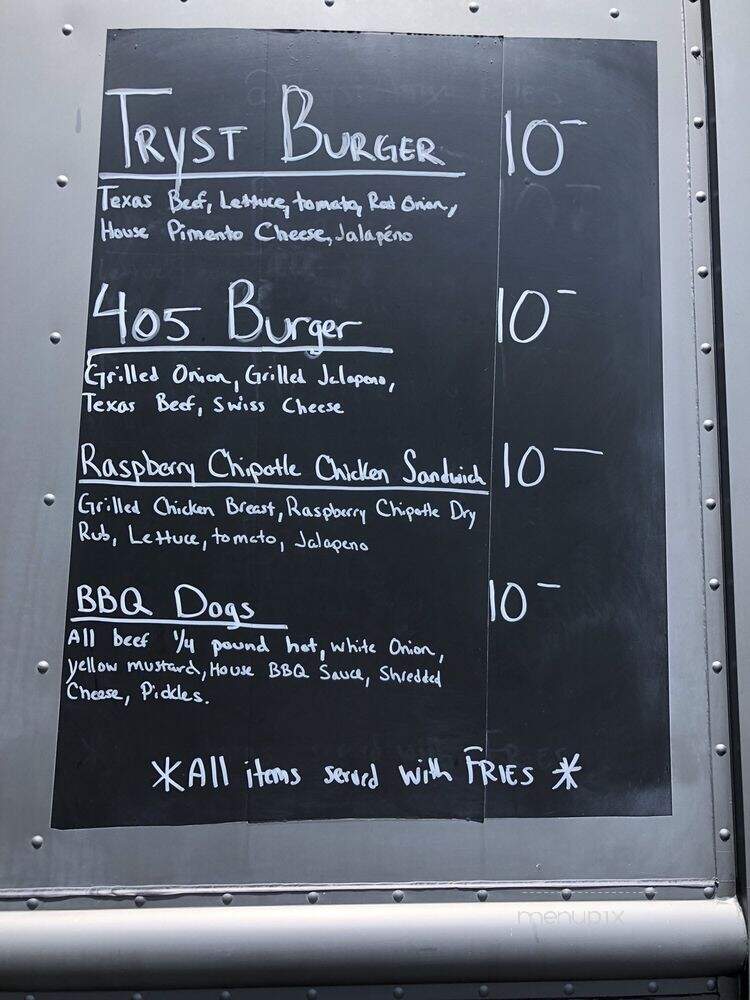 TRYST BURGER 10-
Texas Beef, Lettuce, tomato, Red Onion,
House Pimento Cheese, Jalapéno
405 Burger 10-
Grilled Onion, Grilled Jalapeno,
Texas Beef, Swiss Cheese
Raspberry Chipotle Chicken Sandwich 10-
Grilled Chicken Breast, Raspberry Chipotle Dry
Rub, Lettuce, tomato, Jalapeno
BBQ Dogs 10-
All beef 1/4 pound hot, white Onion,
yellow mustard, House BBQ Sauce, Shredded
Cheese, Pickles.
*All items served with FRIES *
menupix